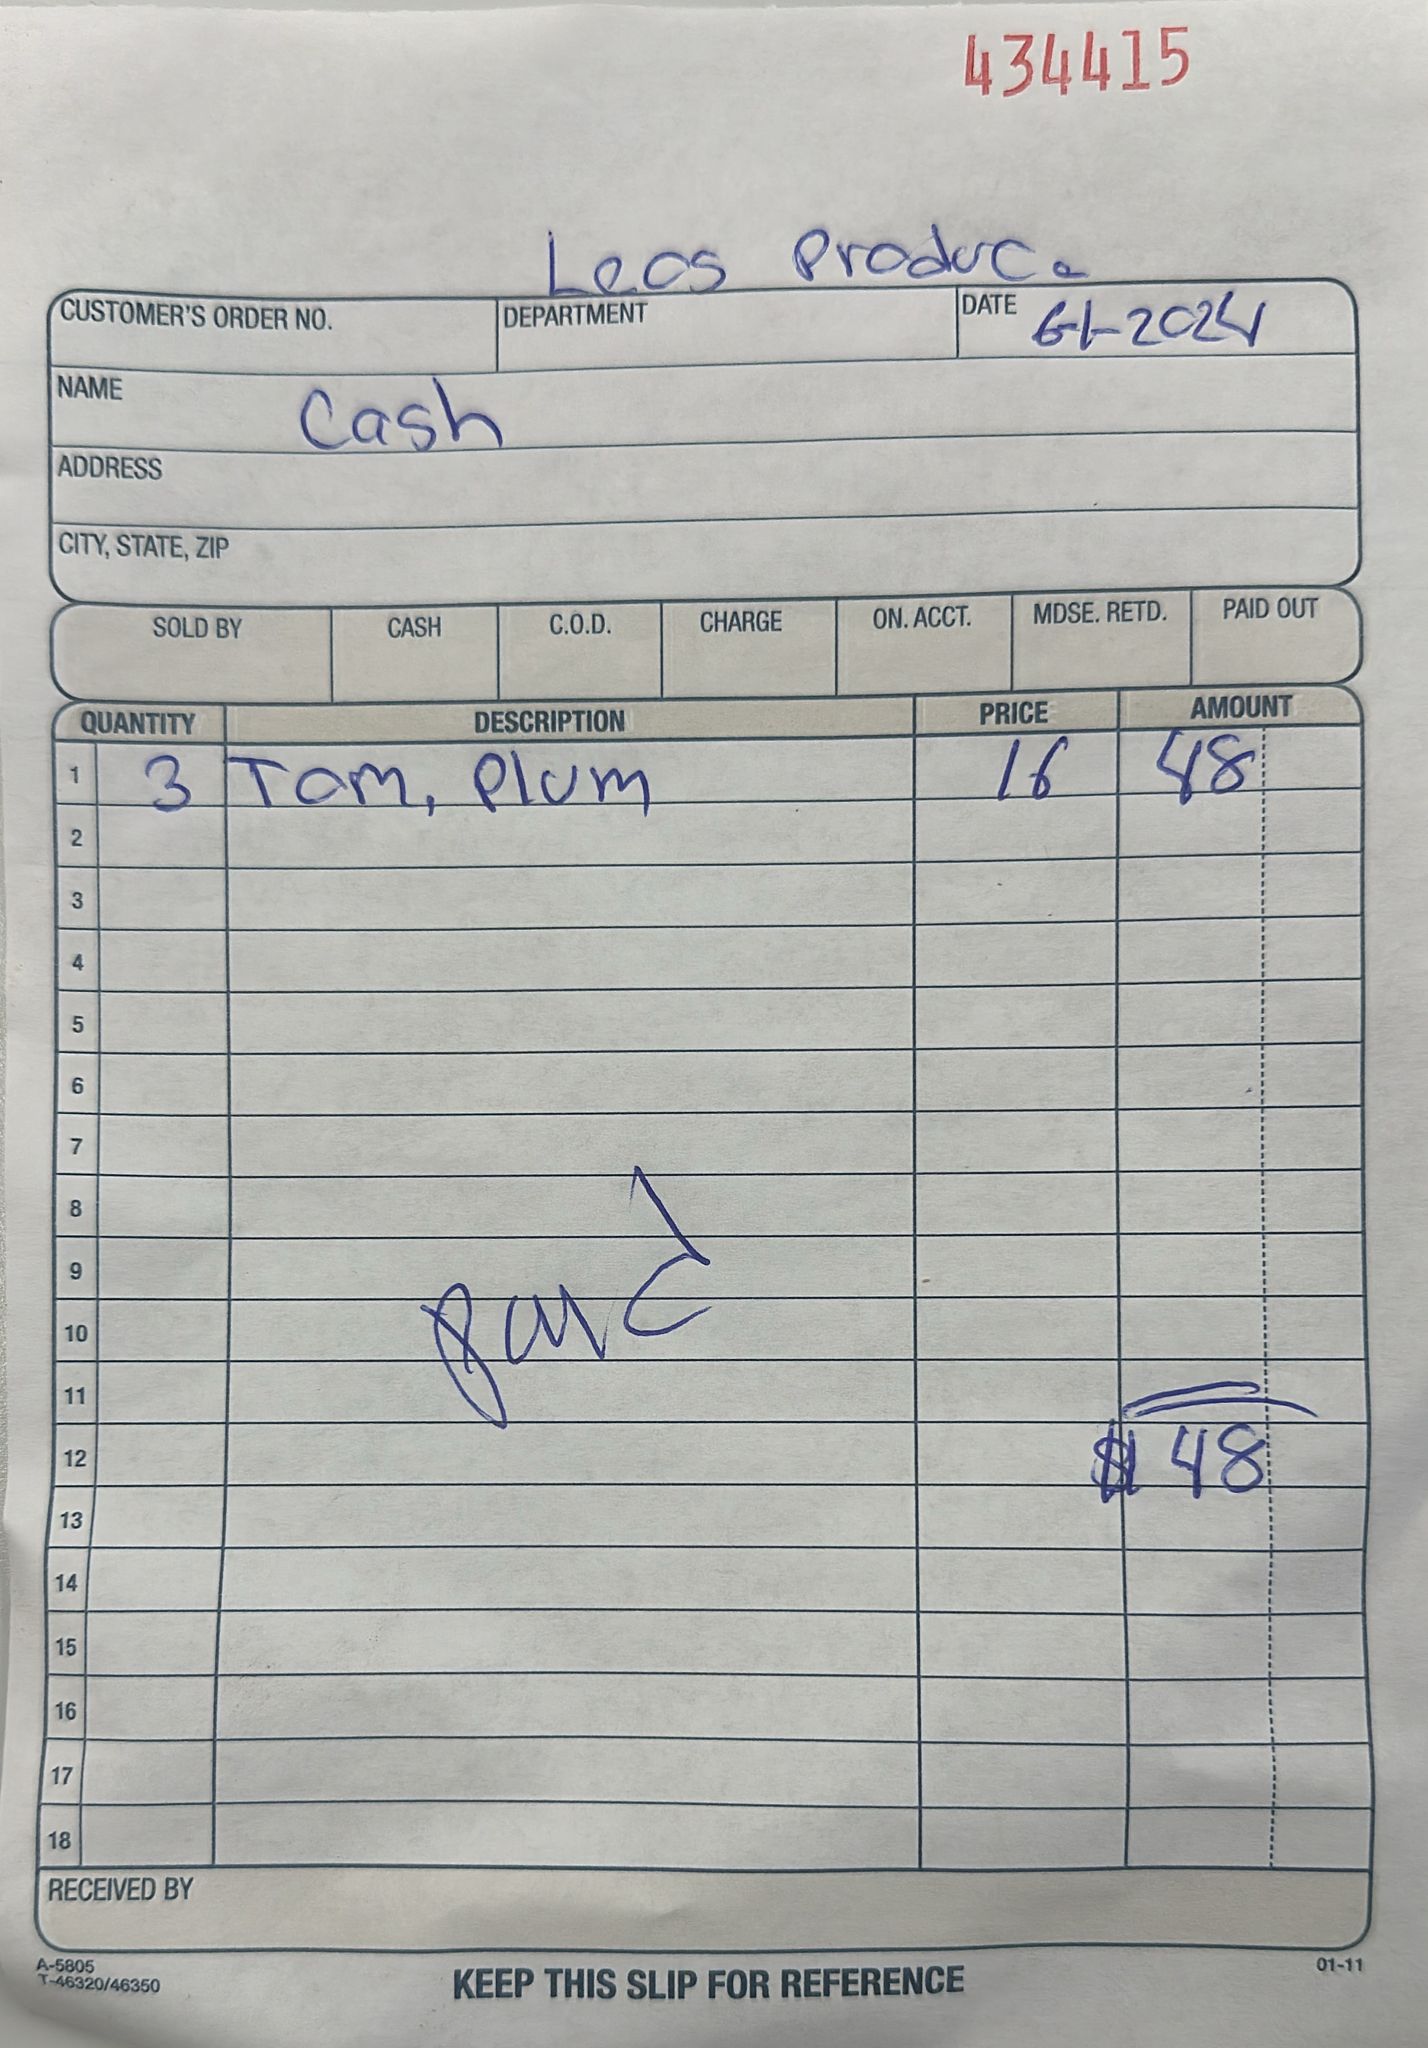 434415
Leos Produce
CUSTOMER'S ORDER NO. DEPARTMENT DATE 6-1-2024
NAME Cash
ADDRESS
CITY, STATE, ZIP
SOLD BY CASH C.O.D. CHARGE ON. ACCT. MDSE. RETD. PAID OUT
QUANTITY DESCRIPTION PRICE AMOUNT
1 3 Tom, Plum 16 48
2
3
4
5
6
7
8
9
10 paid
11
12 $ 48
13
14
15
16
17
18
RECEIVED BY
A-5805
T-46320/46350
KEEP THIS SLIP FOR REFERENCE
01-11